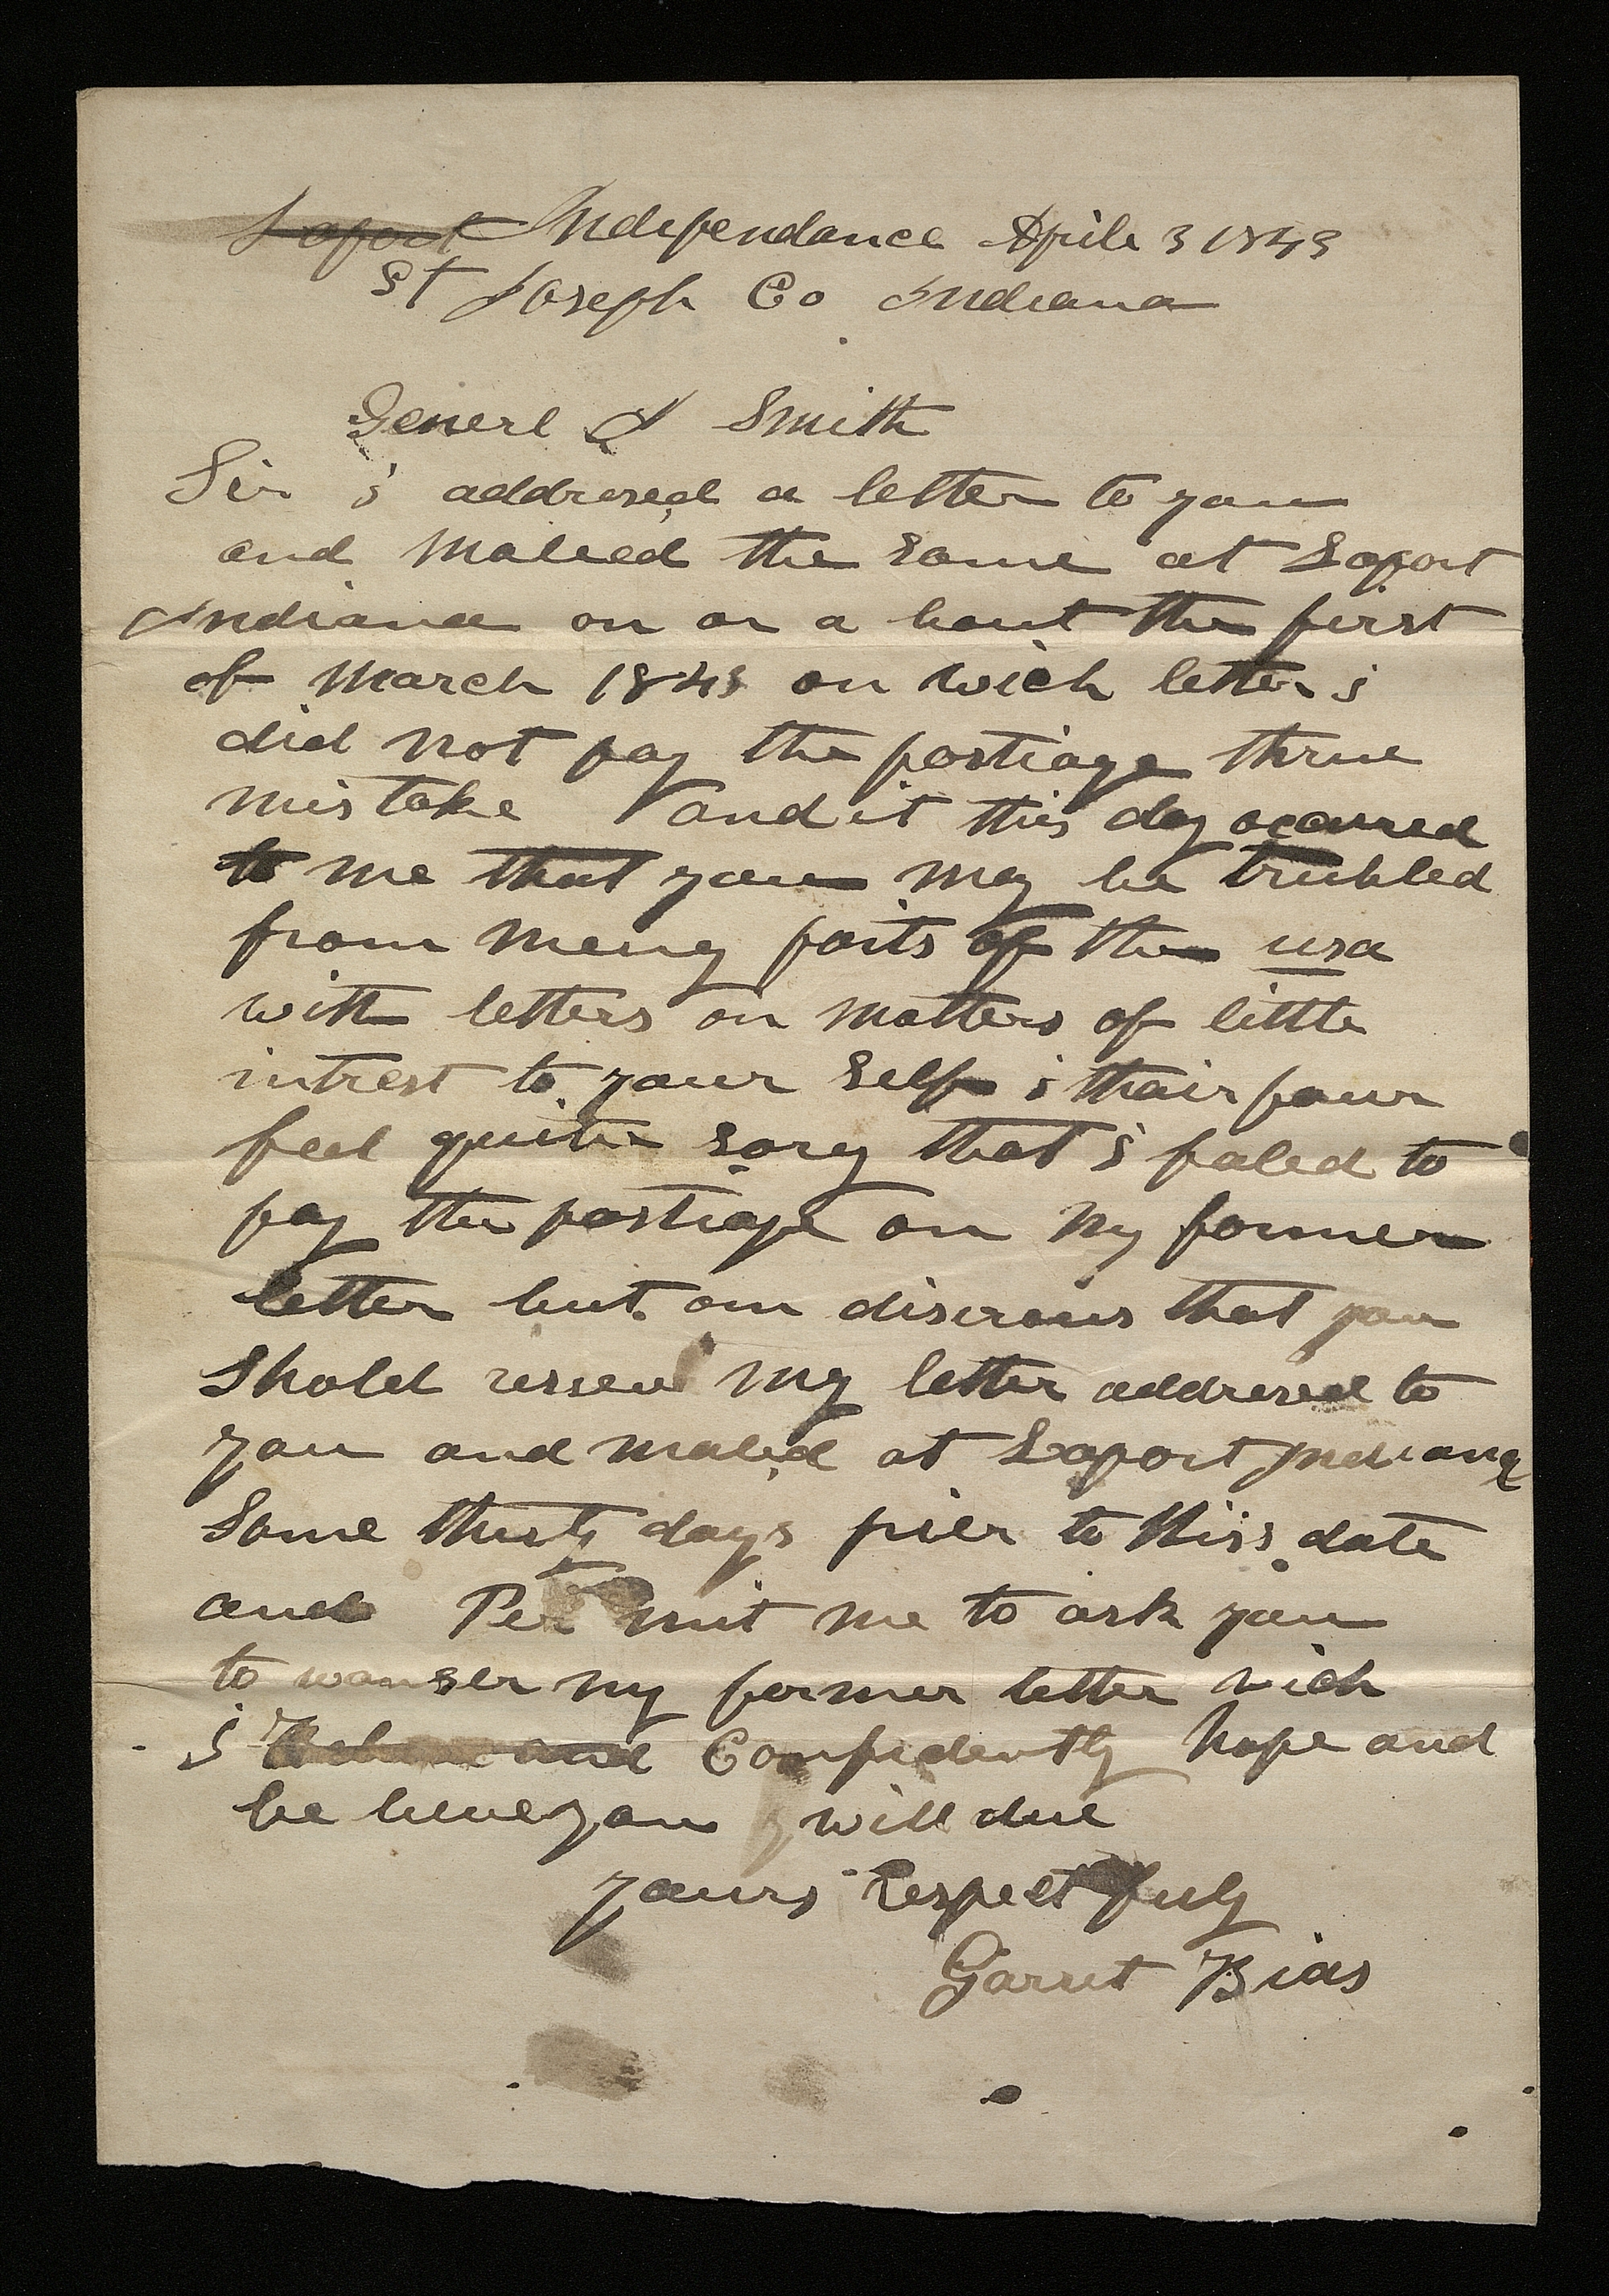 Laport Independance Aprile 3 1843
St Joseph Co Indiana
Generl J Smith
Sir i addresed a letter to you
and maleed the same at Laport
Indiana on or a bout the first
of March 1843 on wich letter i
did not pay the postiage thrue
mis take and it this day ocarred
to me that you may be trubled
from meny parts of the usa
with letters on matters of little
intrest to your self i thair four
feel quite sory that i faled to
pay the postiage on my former
letter but am discrous that you
shold resseve my letter addresed to
you and maled at Laport Indiana
Some thirty days prier to this date
and Per mit me to ask you
to wanser my former letter wich
i and Confidently hope and
be lieve you will due
yours respect fuly
Garret Bias